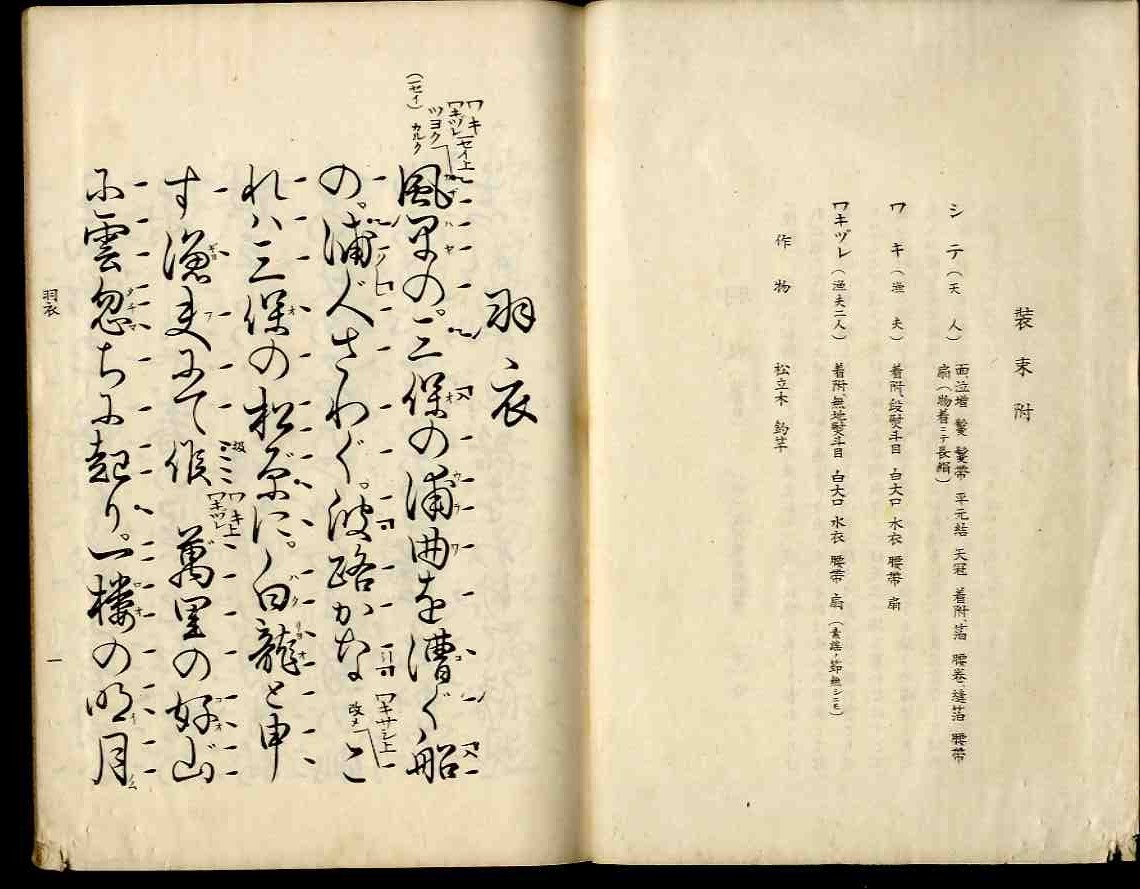 装束附
シテ(天人) 面、泣増 鬘 鬘帯 平元結 天冠 着附、箔 腰巻、縫箔 腰帯
扇(物着ニテ長絹)
ワキ(漁夫) 着附、段熨斗目 白大口 水衣 腰帯 扇
ワキヅレ(漁夫二人) 着附無地熨斗目 白大口 水衣 腰帯 扇(素謡ノ節無シニモ)
作物 松立木 釣竿
羽衣
ワキ
ワキヅレ一セイ上
ツヨク
(一セイ)カルク
風早の。三保の浦曲を漕ぐ船
の。浦人さわぐ。波路かな
ワキサシ上
改メ
こ
れハ三保の松原に。白龍と申
す漁夫にて候
ワキ上
ワキヅレ
萬里の好山
に雲忽ちに起り。一楼の明月
羽衣
一